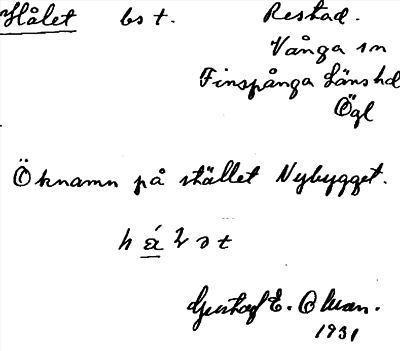 Hålet bst. Restad.
Vånga sn
Finspånga länshd
Ögl
Öknamn på stället Nybygget.
Gustaf E. Olsson.
1931